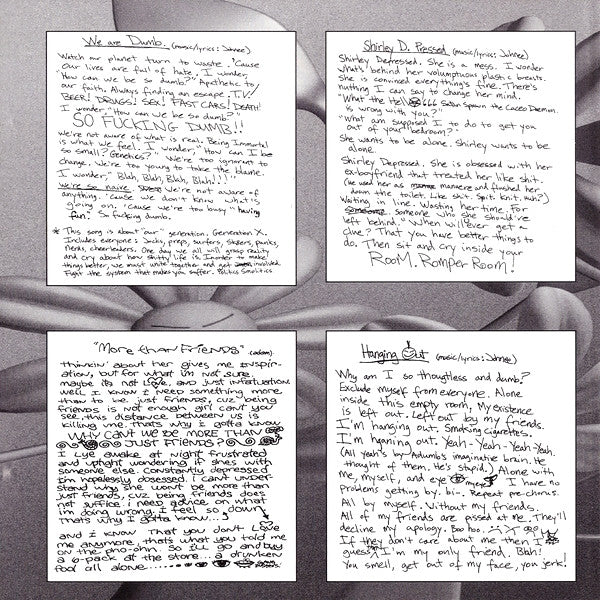 We are Dumb. (music/lyrics: Johnee)
Watch our planet turn to waste. 'Cause
our lives are full of hate. I wonder,
"How can we be so dumb?" Apathetic to
our faith. Always finding an escape. (TV)
BEER! DRUGS! SEX! FAST CARS! DEATH!
I wonder, "How can we be so dumb?"
SO FUCKING DUMB!!
We're not aware of what is real. Being Immortal
is what we feel. I wonder, "How can I be
so small? Genetics?" We're too ignorant to
change. We're too young to take the blame.
I wonder, "Blah, Blah, Blah, Blah!!!"
We're so naive. We're not aware of
anything. 'Cause we don't know what's
going on. 'Cause we're too busy "having
fun." So fucking dumb.
* This song is about "our" generation: Generation X.
Includes everyone: Jocks, preps, surfers, skaters, punks,
nerds, cheerleaders. One day we all will grasp reality
and cry about how shitty life is. Inorder to make
things better, we must unite together and get involved.
Fight the system that makes you suffer. Politics Smolitics
Shirley D. Pressed (music/lyrics: Johnee)
Shirley Depressed. She is a mess. I wonder
what's behind her volumptuous plastic breasts.
She is convinced everything's fine. There's
nuthing I can say to change her mind.
"What the Hell 666 Satan Spawn the Cacodemon
is wrong with you?"
"What am supposed I to do to get you
out of your bedroom?"
She wants to be alone. Shirley wants to be
alone.
Shirley Depressed. She is obsessed with her
ex-boyfriend that treated her like shit.
(He used her as manuere and flushed her
down the toilet. Like shit. Spit. Knit. Huh?)
Waiting in line. Wasting her time. For
someone who she should've
left behind." When will ever get a
clue? That you have better things to
do. Then sit and cry inside your
ROOM. Romper Room!
"More than Friends" (adam)
thinkin' about her gives me inspir-
ation, but for what im not sure.
maybe its not love, and just infatuation
well i know i need something more
than to be just friends, cuz being
friends is not enough girl cant you
see this distance between us is
killing me. thats why i gotta know
WHY CAN'T WE BE MORE THAN
JUST FRIENDS?
I lye awake at night frustrated
and uptight wondering if shes with
someone else. Constantly depressed
im hopelessly obsessed. i cant under-
stand why she wont be more than
just friends, cuz being friends does
not suffice. i need advice on what
im doing wrong. i feel so down
thats why i gotta know...
and i know that you dont love
me anymore, thats what you told me
on the pho-ohn. so ill go and buy
a 6-pack at the store... a drunken
fool all alone.....
Hanging Out (music/lyrics: Johnee)
Why am I so thoughtless and dumb?
Exclude myself from everyone. Alone
inside this empty room, My existence
is left out. Left out by my friends.
I'm hanging out. Smoking cigarettes.
I'm hanging out. Yeah-Yeah-Yeah-Yeah.
(All yeah's by Adumb's imaginative brain. He
thought of them. He's stupid.) Alone with
me, myself, and eye myself I have no
problems getting by. bi-. Repeat pre-chorus.
All by myself. Without my friends.
All of my friends are pissed at me. They'll
decline my apology. Boo hoo.
If they don't care about me then I
guess I'm my only friend. Blah!
You smell, get out of my face, you jerk!